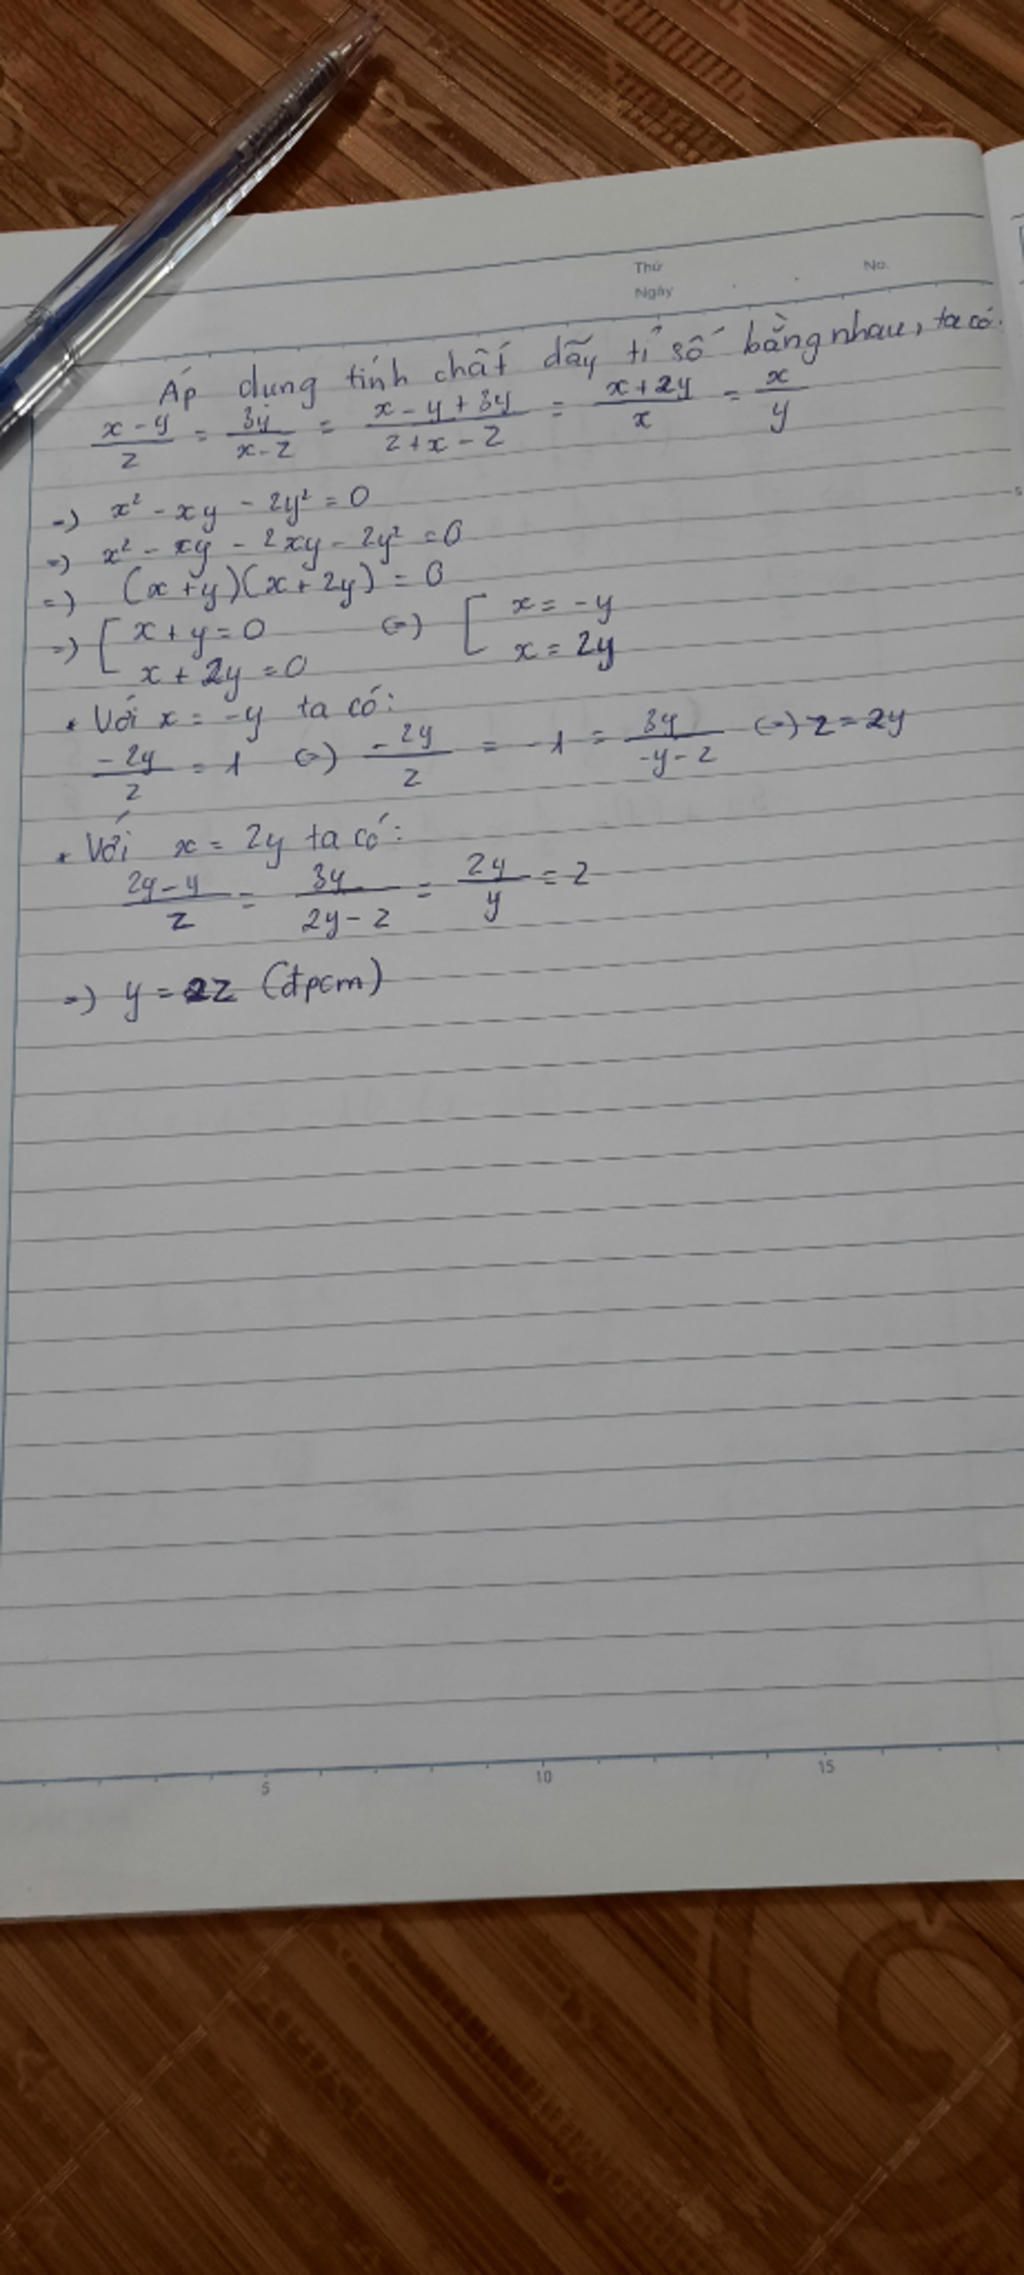 Thứ No.
Ngày
Áp dụng tính chất dãy tỉ số bằng nhau, ta có.
(x - y)/z = 3y/(x - z) = (x - y + 3y)/(z + x - z) = (x + 2y)/x = x/y
=) x² - xy - 2y² = 0
=) x² - xy - 2xy - 2y² = 0
=) (x + y)(x + 2y) = 0
=) [ x + y = 0 (=) [ x = -y
x + 2y = 0 x = 2y
* Với x = -y ta có:
-2y/z = 1 (=) -2y/z = -1 = 3y/(-y - z) (=) z = 2y
* Với x = 2y ta có:
(2y - y)/z = 3y/(2y - z) = 2y/y = 2
=) y = 2z (đpcm)
5 10 15